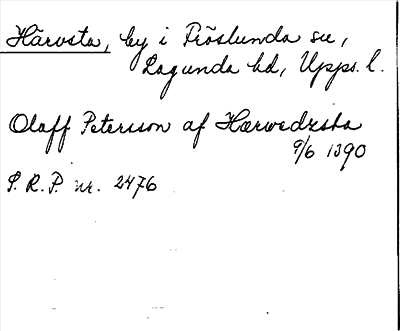 Härvsta, by i Fröslunda sn,
Lagunda hd, Upps. l.
Olaff Petersson af Hærvedzsta
9/6 1390
S. R. P. nr. 2476